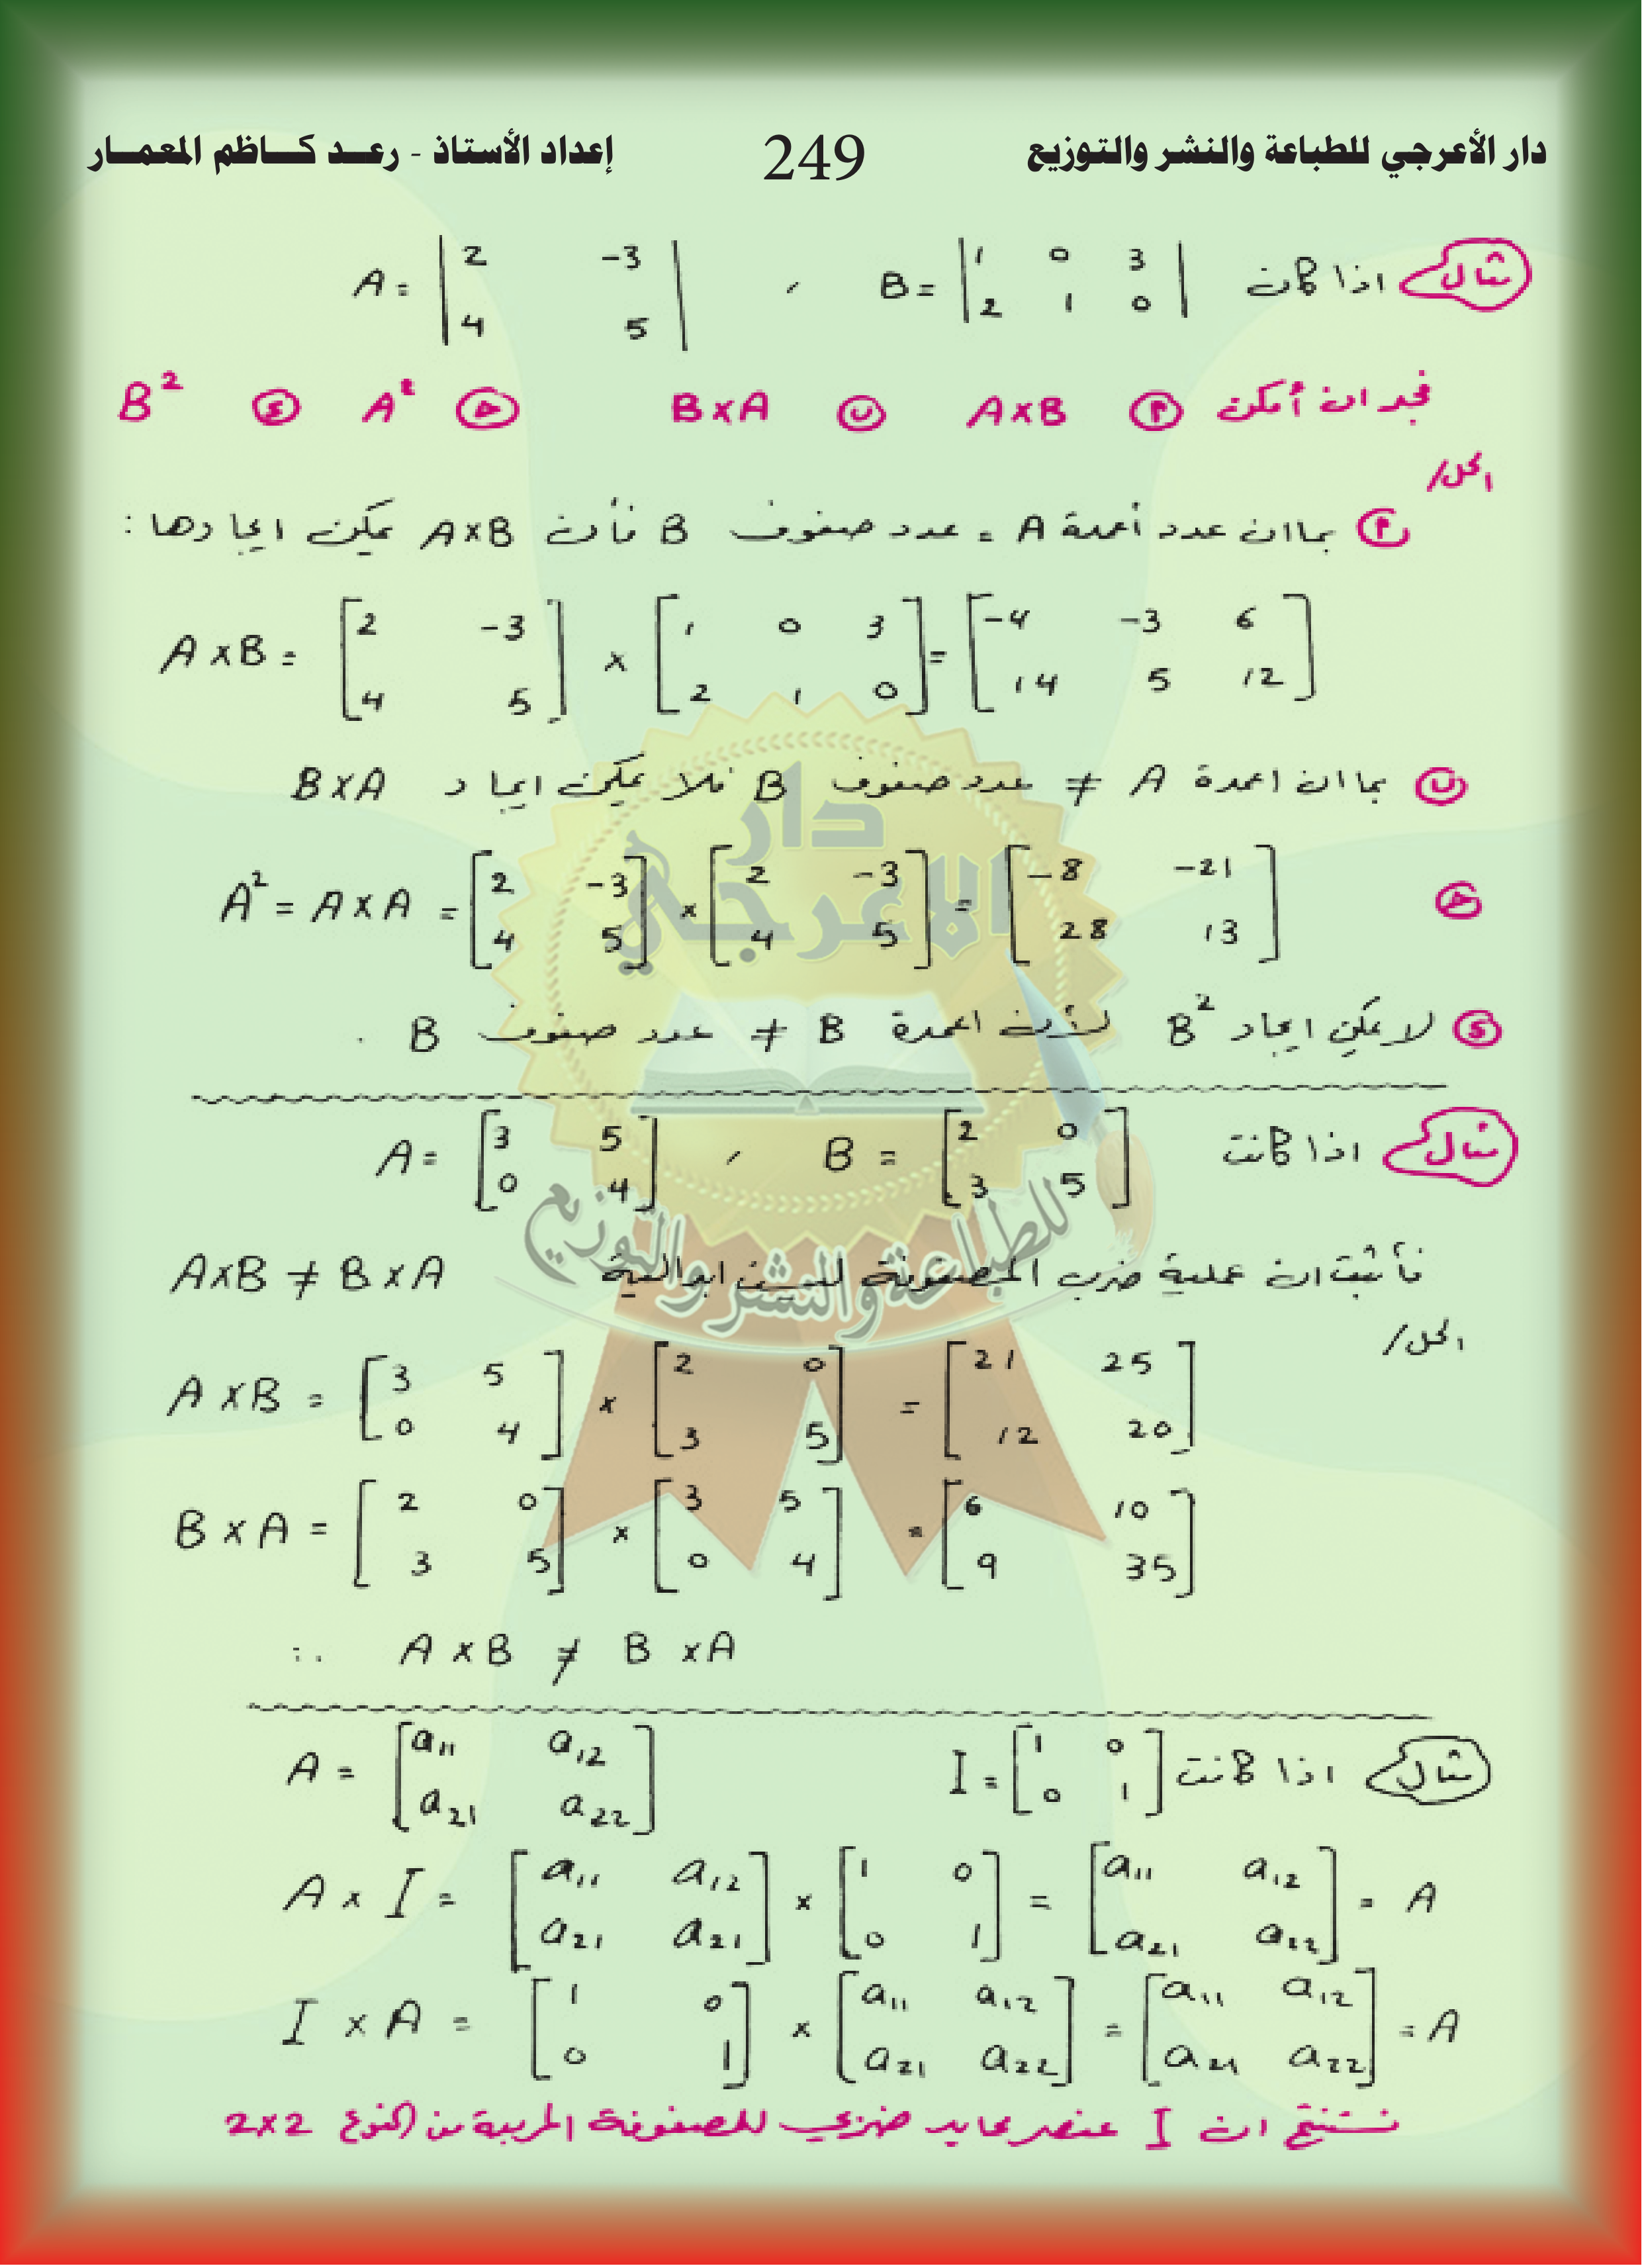 دار الأعرجي للطباعة والنشر والتوزيع 249 إعداد الأستاذ - رعد كاظم المعمار
مثال اذا كانت B = | 1 0 3 ; 2 1 0 | ، A = | 2 -3 ; 4 5 |
فجد ان أمكن (أ) A×B (ب) B×A (ج) A² (د) B²
الحل/
(أ) بما ان عدد أعمدة A = عدد صفوف B فأن A×B يمكن ايجادها :
A×B = [ 2 -3 ; 4 5 ] × [ 1 0 3 ; 2 1 0 ] = [ -4 -3 6 ; 14 5 12 ]
(ب) بما ان اعمدة A ≠ عدد صفوف B فلا يمكن ايجاد B×A
(ج) A² = A×A = [ 2 -3 ; 4 5 ] × [ 2 -3 ; 4 5 ] = [ -8 -21 ; 28 13 ]
(د) لا يمكن ايجاد B² لأن اعمدة B ≠ عدد صفوف B .
مثال اذا كانت A = [ 3 5 ; 0 4 ] ، B = [ 2 0 ; 3 5 ]
فأثبت ان عملية ضرب المصفوفة ليست ابدالية A×B ≠ B×A
الحل/
A×B = [ 3 5 ; 0 4 ] × [ 2 0 ; 3 5 ] = [ 21 25 ; 12 20 ]
B×A = [ 2 0 ; 3 5 ] × [ 3 5 ; 0 4 ] = [ 6 10 ; 9 35 ]
∴ A×B ≠ B×A
مثال اذا كانت I = [ 1 0 ; 0 1 ] A = [ a11 a12 ; a21 a22 ]
A×I = [ a11 a12 ; a21 a21 ] × [ 1 0 ; 0 1 ] = [ a11 a12 ; a21 a22 ] = A
I×A = [ 1 0 ; 0 1 ] × [ a11 a12 ; a21 a22 ] = [ a11 a12 ; a21 a22 ] = A
نستنتج ان I عنصر محايد ضربي للمصفوفة المربعة من النوع 2×2
دار الاعرجي
للطباعة والنشر والتوزيع